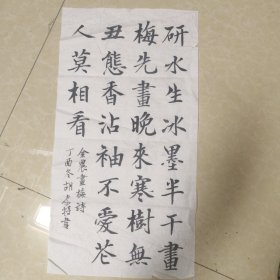 研水生冰墨半干畫
梅先畫晚來寒樹無
丑態香沾袖不愛花
人莫相看
金農畫梅詩
丁酉冬胡書